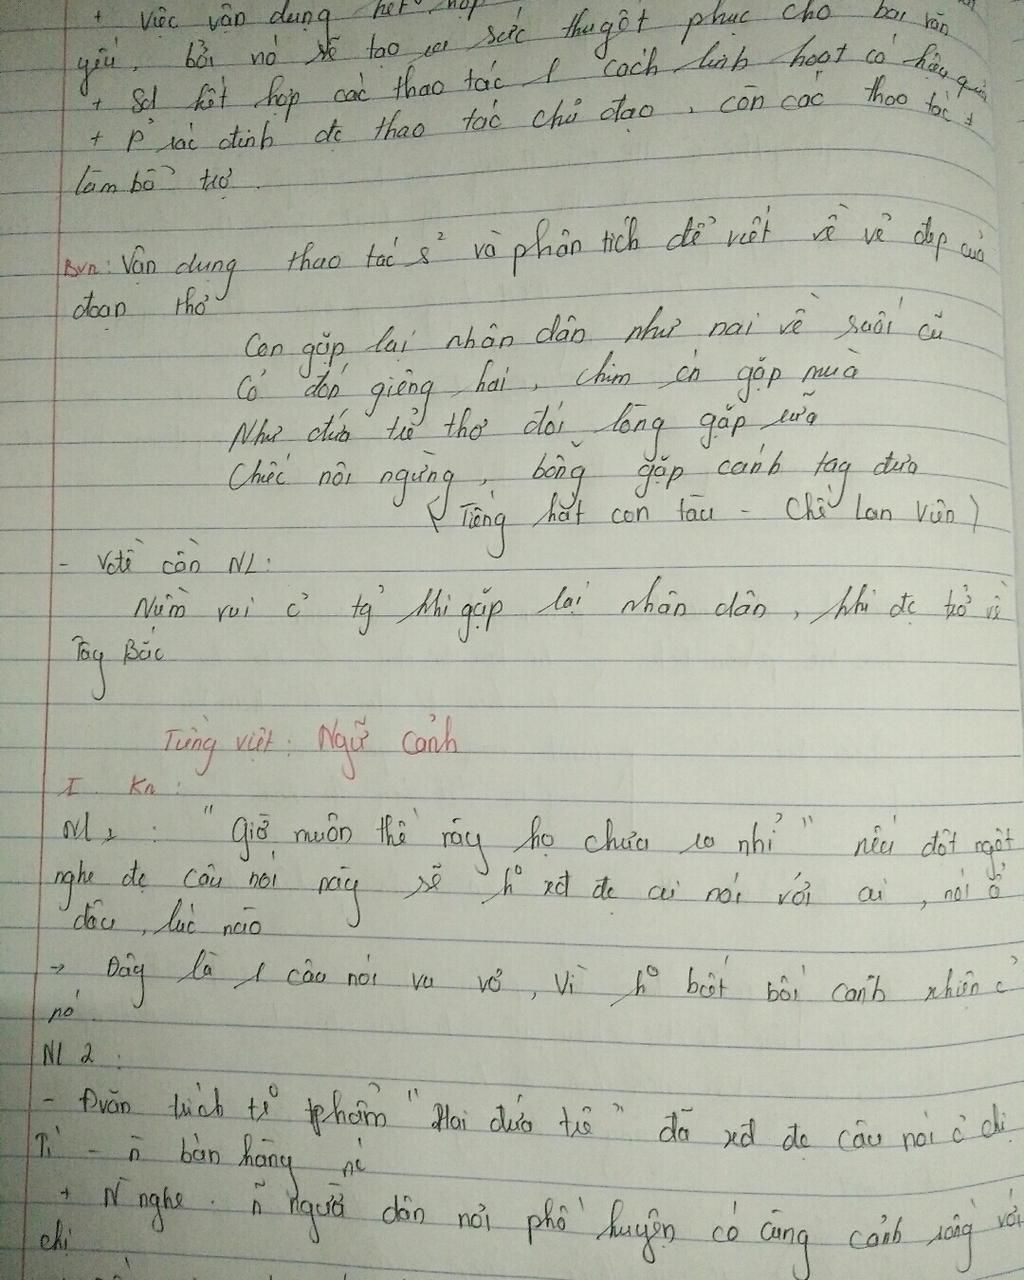 + việc vận dụng kết hợp
yếu, bởi nó sẽ tạo ra sức thuyết phục cho bài văn
+ Sd kết hợp các thao tác 1 cách linh hoạt có hiệu quả
+ P' xác định đc thao tác chủ đạo, còn các thao tác ≠
làm bổ trợ.
BVN: Vận dụng thao tác s² và phân tích để viết về vẻ đẹp của
đoạn thơ
Con gặp lại nhân dân như nai về suối cũ
Cỏ đón giêng hai, chim én gặp mùa
Như đứa trẻ thơ đói lòng gặp sữa
Chiếc nôi ngừng, bỗng gặp cánh tay đưa
(Tiếng hát con tàu - Chế Lan Viên)
- Vđề cần NL:
Niềm vui c̉ tg̉ khi gặp lại nhân dân, khi đc trở về
Tây Bắc
Tiếng việt: Ngữ cảnh
I. Kn:
NL 1: "Giờ muộn thế này họ chưa ra nhỉ" nếu đột ngột
nghe đc câu nói này sẽ k° xđ đc ai nói với ai, nói ở
đâu, lúc nào
→ Đây là 1 câu nói vu vơ, Vì k° biết bối cảnh nhiên c̉
nó.
NL 2:
- Đvăn trích từ tphẩm "Hai đứa trẻ" đã xđ đc câu nói c̉ chị
Tí - ñ bán hàng nc
+ N nghe: ñ người dân nơi phố huyện có cùng cảnh sống với
chị